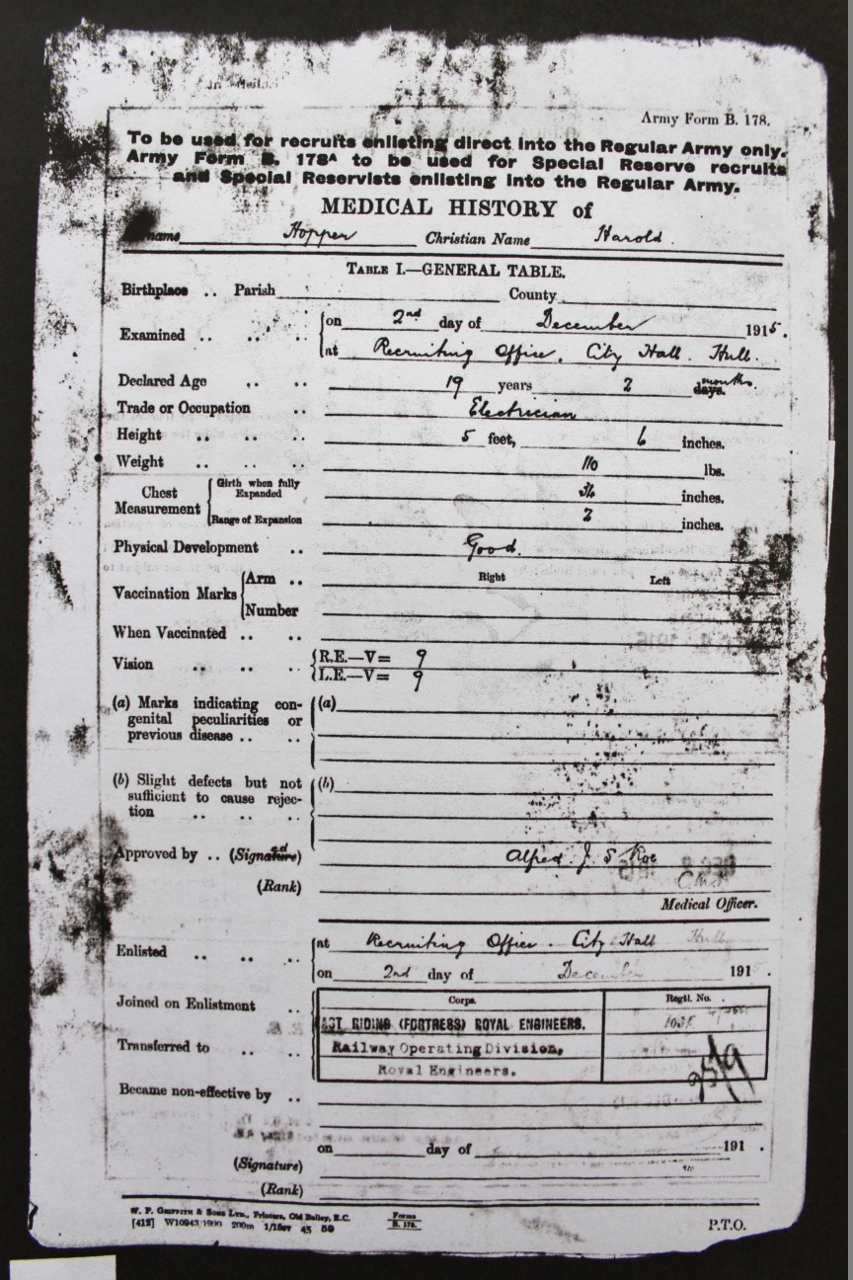 Army Form B. 178.
To be used for recruits enlisting direct into the Regular Army only.
Army Form B. 178A to be used for Special Reserve recruits
and Special Reservists enlisting into the Regular Army.
MEDICAL HISTORY of
Hopper Christian Name Harold.
TABLE I.—GENERAL TABLE.
Birthplace .. Parish County
Examined .. .. .. on 2nd day of December 1915.
at Recruiting Office. City Hall. Hull.
Declared Age .. .. 19 years 2 months days.
Trade or Occupation .. Electrician
Height .. .. .. 5 feet, 6 inches.
Weight .. .. .. 110 lbs.
Chest Measurement Girth when fully Expanded 34 inches.
Range of Expansion 2 inches.
Physical Development .. Good.
Right Left
Vaccination Marks Arm ..
Number
When Vaccinated .. ..
Vision .. .. .. R.E.—V= 9
L.E.—V= 9
(a) Marks indicating con- (a)
genital peculiarities or
previous disease .. ..
(b) Slight defects but not (b)
sufficient to cause rejec-
tion .. .. ..
Approved by .. (Signature) Alfred J. S. Roe
(Rank)
Medical Officer.
Enlisted .. .. .. at Recruiting Office. City Hall Hull
on 2nd day of December 191 .
Corps. Regtl. No.
Joined on Enlistment .. RIDING (FORTRESS) ROYAL ENGINEERS.
Transferred to .. .. Railway Operating Division,
Royal Engineers.
Became non-effective by ..
on day of 191 .
(Signature)
(Rank)
W. P. GRIFFITH & SONS LTD., Printers, Old Bailey, E.C.
Forms
B. 178.
P.T.O.